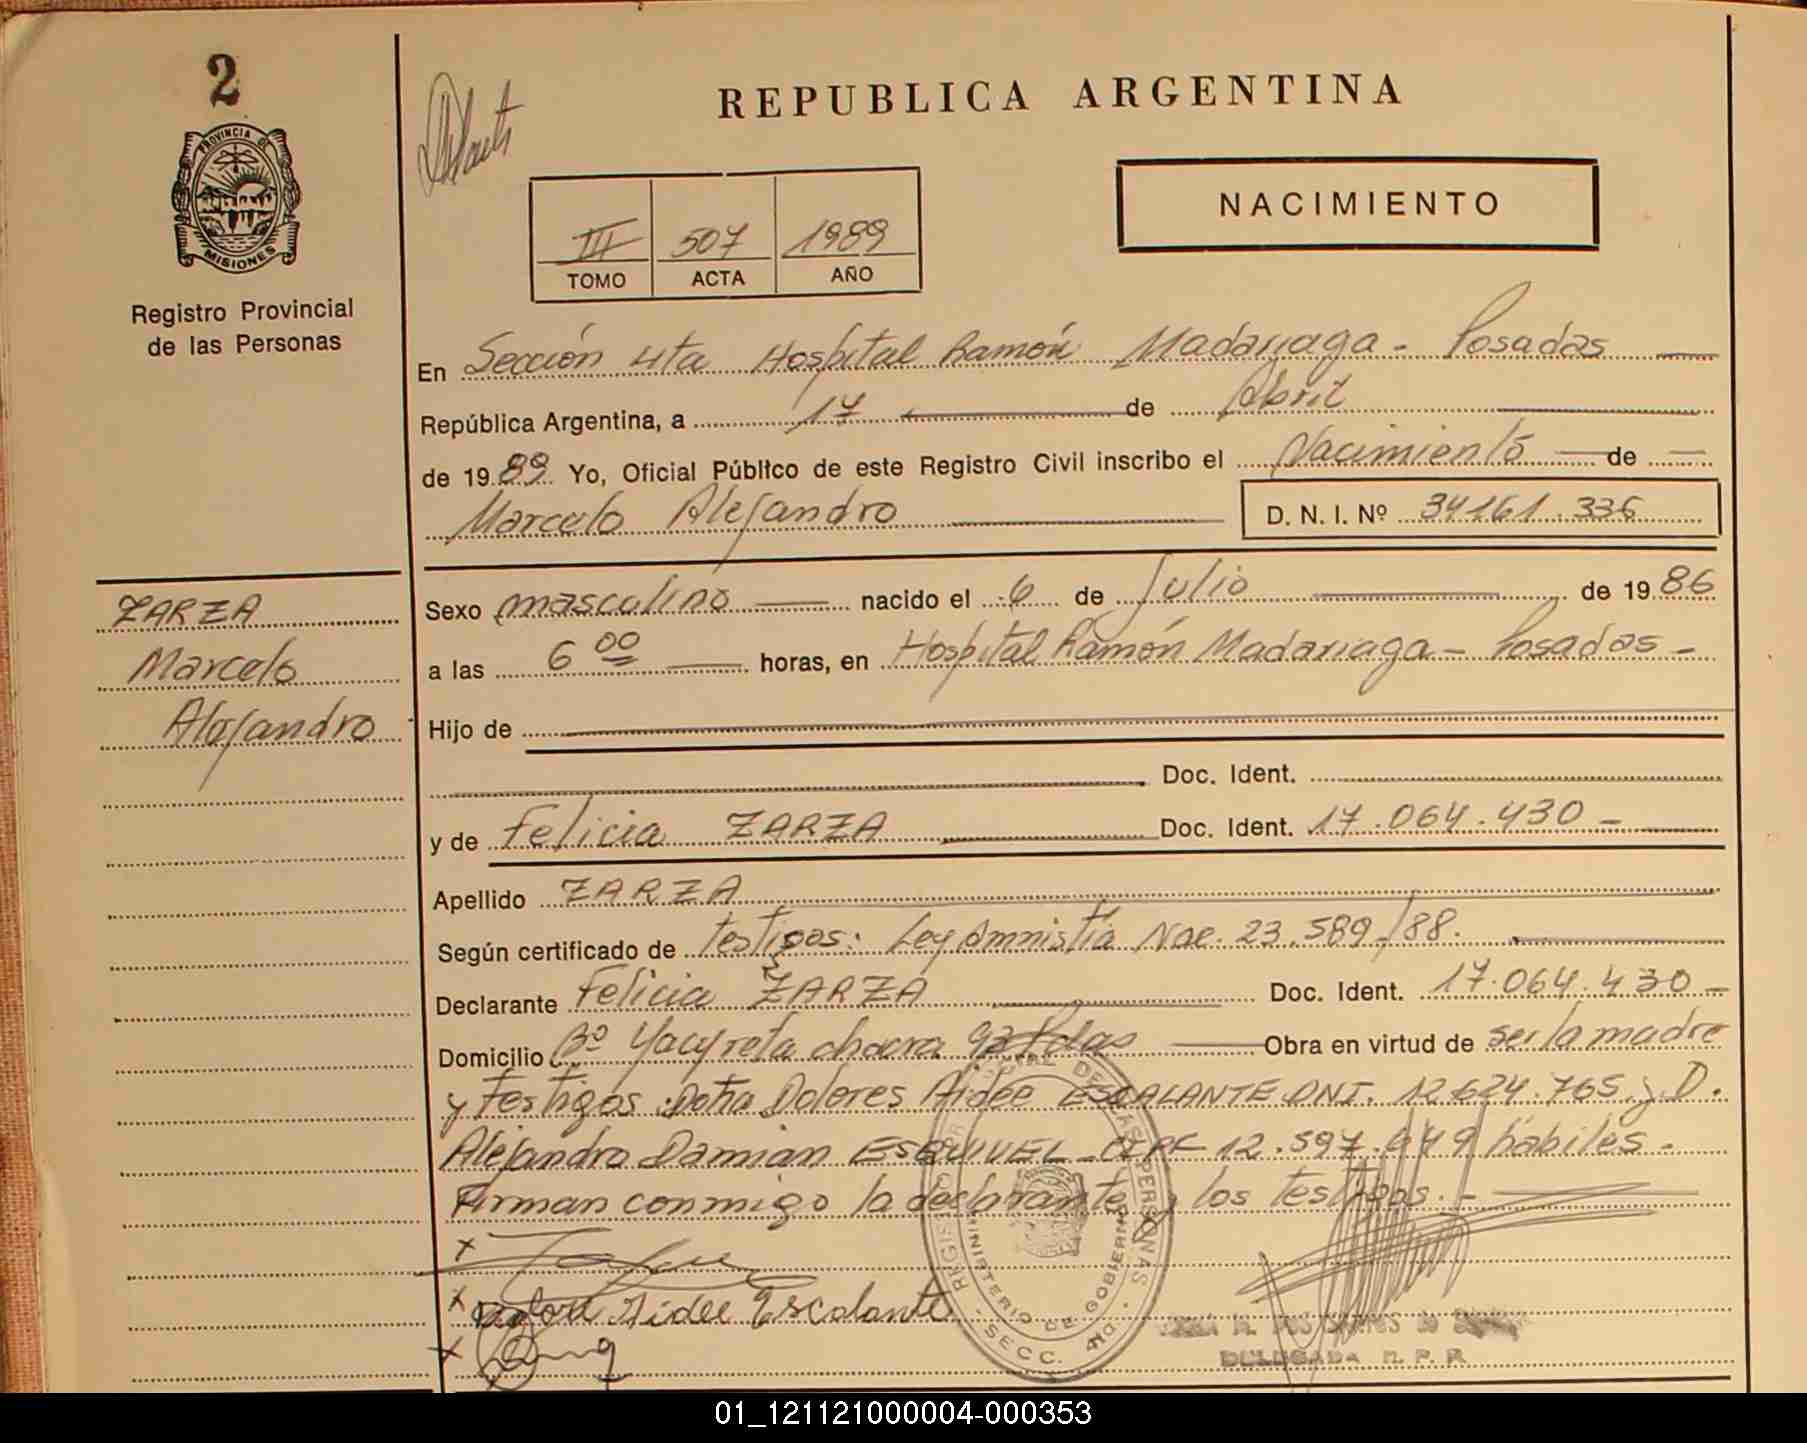 2
PROVINCIA DE
MISIONES
Registro Provincial
de las Personas
REPUBLICA ARGENTINA
NACIMIENTO
III 507 1989
TOMO ACTA AÑO
En Sección 4ta Hospital Ramón Madariaga - Posadas
República Argentina, a 17 de Abril
de 1989 Yo, Oficial Público de este Registro Civil inscribo el Nacimiento de
Marcelo Alejandro D. N. I. Nº 34161.336
ZARZA
Marcelo
Alejandro
Sexo masculino nacido el 6 de Julio de 1986
a las 6 00 horas, en Hospital Ramón Madariaga - Posadas -
Hijo de
Doc. Ident.
y de Felicia ZARZA Doc. Ident. 17.064.430 -
Apellido ZARZA
Según certificado de testigos. Ley Amnistía Nac. 23.589/88.
Declarante Felicia ZARZA Doc. Ident. 17.064.430 -
Domicilio Bº Yacyreta chacra Obra en virtud de ser la madre
y testigos Doña Dolores Aidee ESCALANTE DNI. 12.624.765 y D.
Alejandro Damian ESQUIVEL 12.597.949 hábiles.
Firman conmigo la declarante y los testigos. -
x
x Aidee Escalante
x
REGISTRO PROVINCIAL DE LAS PERSONAS
MINISTERIO DE GOBIERNO
SECC. 4ta
DELEGADA R. P. P.
01_121121000004-000353